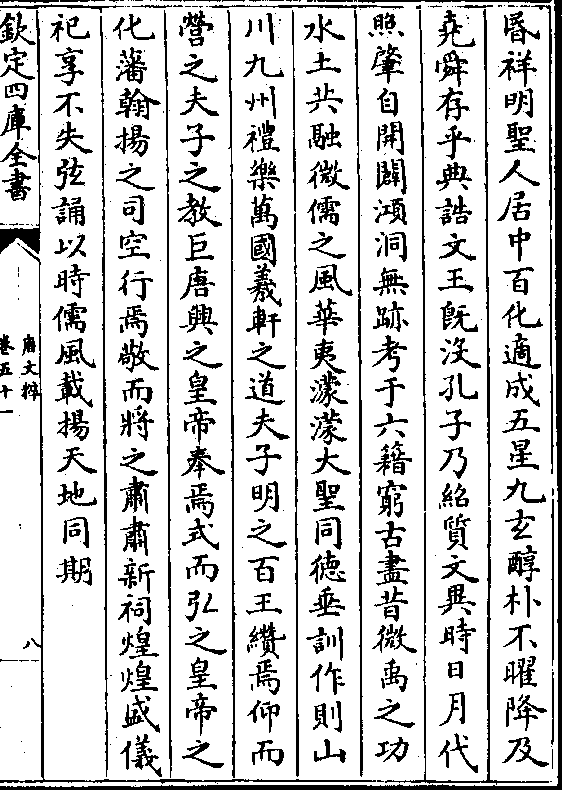 昬祥明聖人居中百化適成五星九玄醇朴不曜降及
堯舜存乎典誥文王旣沒孔子乃紹質文異時日月代
照肇自開闢澒洞無跡考于六籍窮古盡昔微禹之功
水土共融微儒之風華夷濛濛大聖同德垂訓作則山
川九州禮樂萬國羲軒之道夫子明之百王纘焉仰而
營之夫子之教巨唐興之皇帝奉焉式而弘之皇帝之
化藩翰揚之司空行焉敬而將之肅肅新祠煌煌盛儀
祀享不失弦誦以時儒風載揚天地同期
欽定四庫全書
唐文粹
卷五十一
八